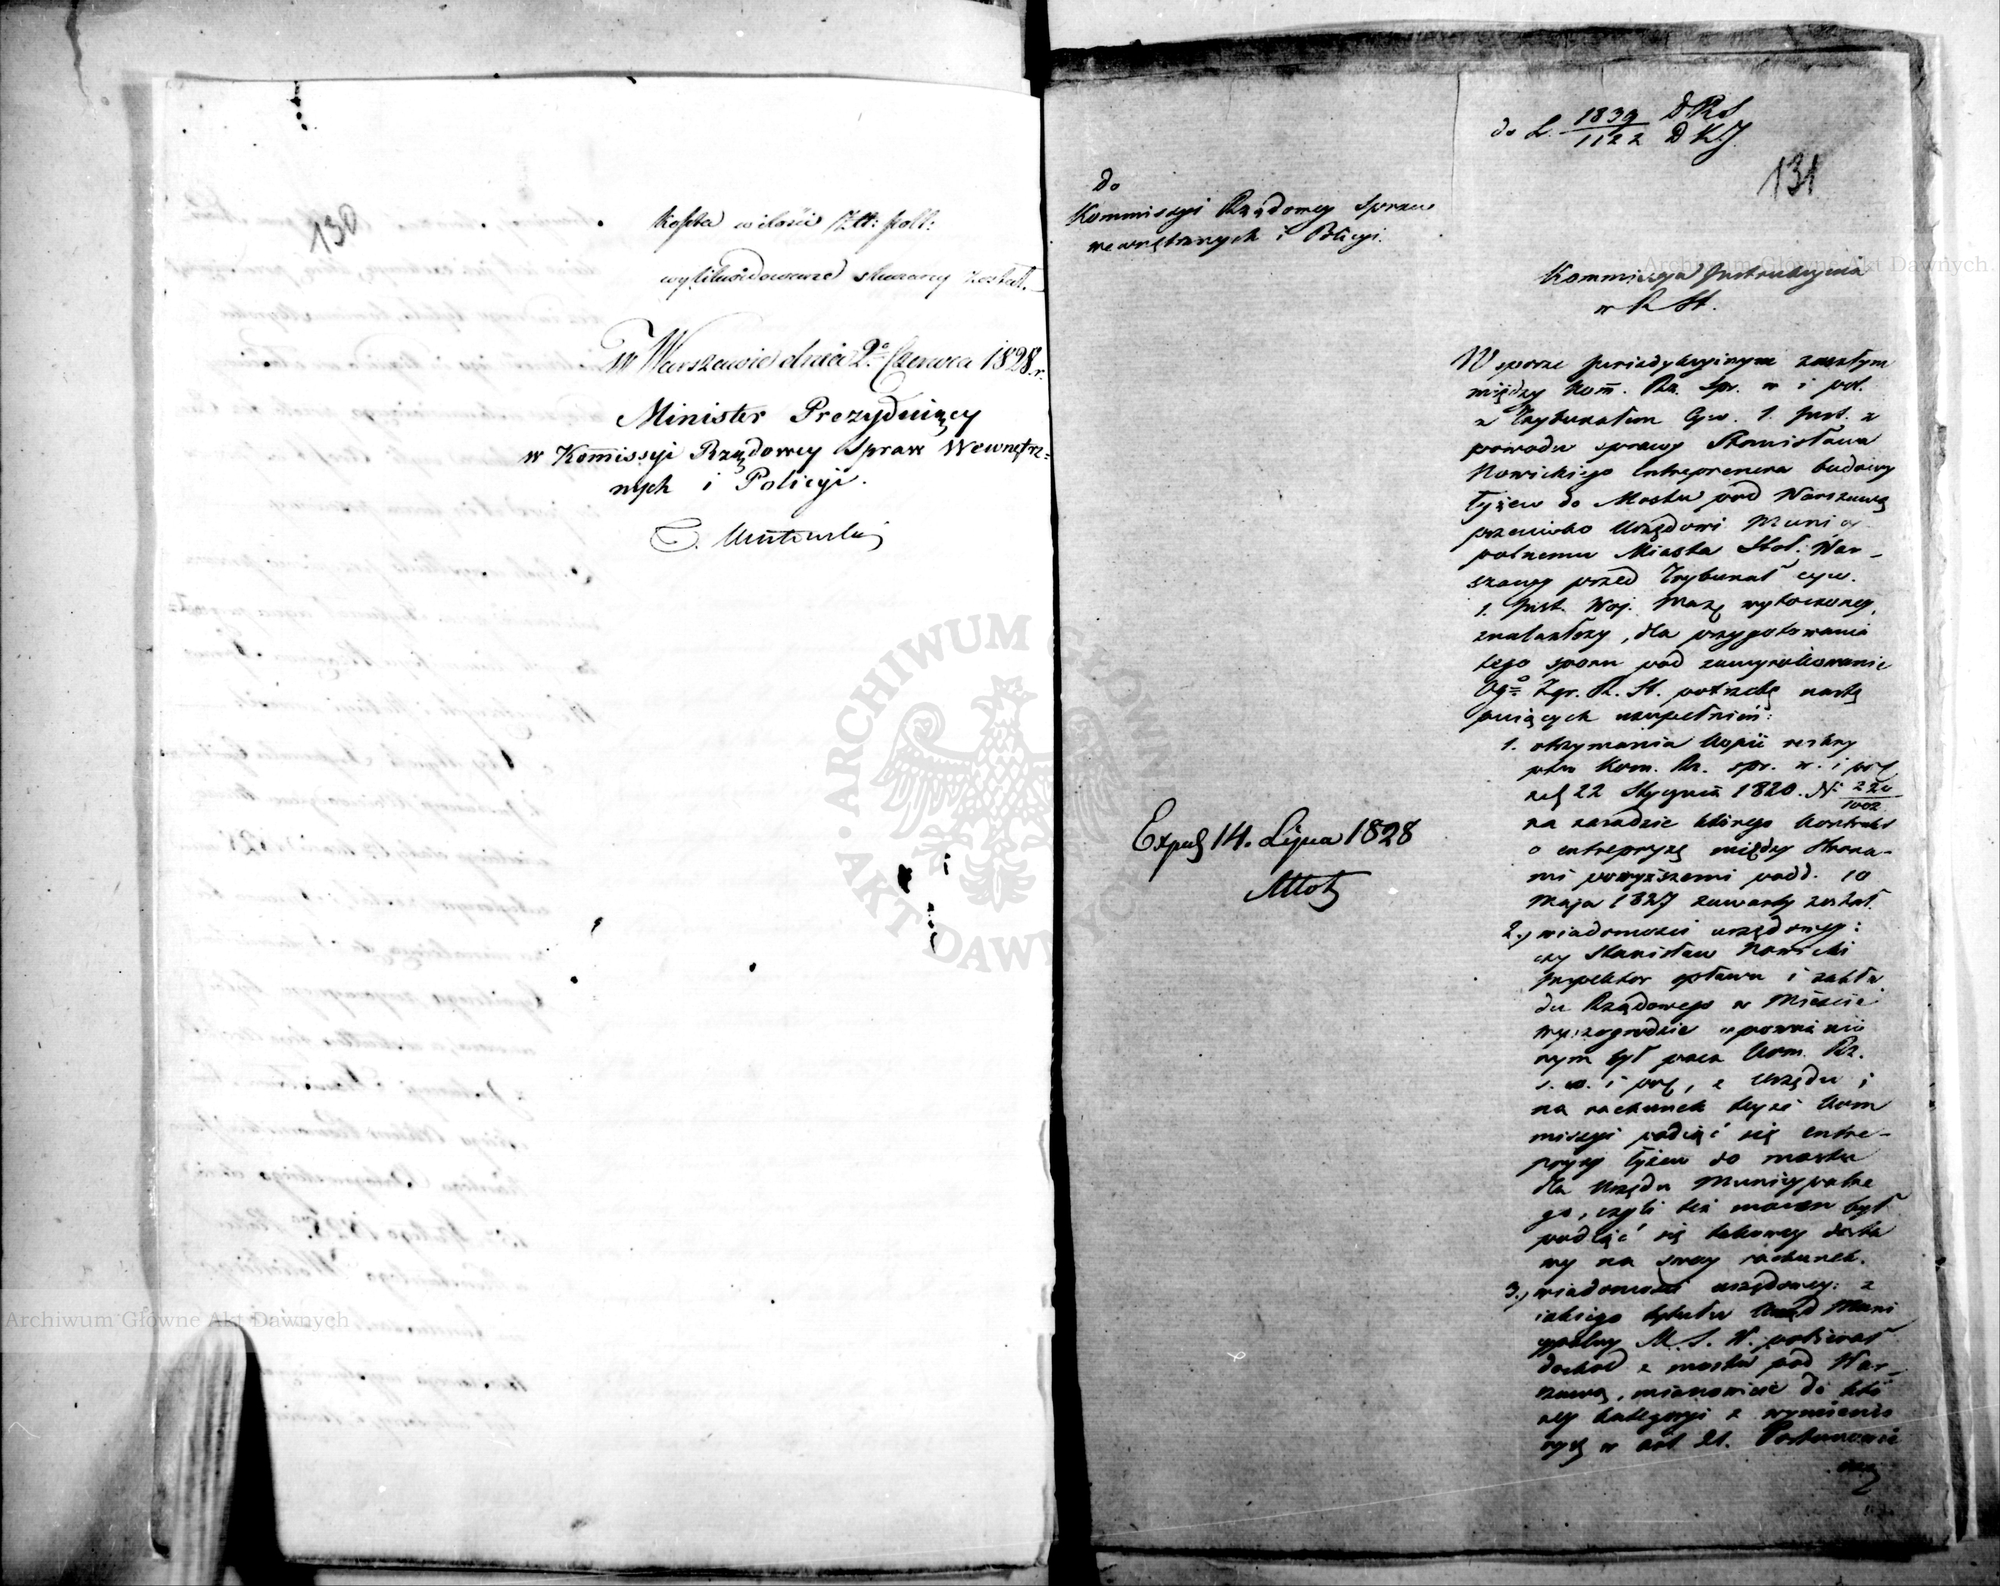 130
Koszta w ilości Złł: poll:
wylikwidowane skazany został.
W Warszawie dnia 2º Czerwca 1828.r.
Minister Prezydujący
w Kommissyi Rządowey Spraw Wewnętrz=
nych i Policyi.
do L. 1839/1122 D R S D K J
131
do
Kommissyi Rządowey Spraw
wewnętrznych i Policyi.
Kommissya Instrukcyina
w R St.
W sporze jurizdykcyinym zaszłym
między Kom. Rz. Spr. w i pol.
a Trybunałem Cyw. 1. Inst. z
powodu sprawy Stanisława
Nowickiego Entreprenera budowy
łyżew do Mostu pod Warszawą
przeciwko Urzędowi Municy
palnemu Miasta Stoł: War-
szawy przed Trybunał cyw.
1. Inst. Woj. Maz. wytoczoney,
znalazłszy, dla przygotowania
tego sporu pod zawyrokowanie
Ogº Zgr. R. St. potrzebę nastę
puiących uzupełnień:
1. otrzymania kopii reskry
ptu Kom. Rz. spr. w. i pol
z d. 22 Stycznia 1820. N.
na zasadzie którego kontrakt
o entrepryzę między Strona-
mi powyższemi pod d. 10
Maja 1827 zawarty został.
2., wiadomości urzędowey:
czy Stanisław Nowicki
Inspektor spławu i zakła
du Rządowego w Mieście
Wyszogrodzie upoważnio
nym był przez Kom. Rz.
s. w. i pol, z Urzędu i
na rachunek teyże Kom
missyi podiąć się entre-
pryzy łyżew do mostu
dla Urzędu Municypalne
go, czyli też mocen był
podiąć się takowey dosta
wy na swoy rachunek.
3., wiadomości urzędowey: z
iakiego tytułu Urząd Muni
cypalny M. S. W. pobierał
dochod z mostu pod War-
szawą, mianowicie do któ
rey kategoryi z wymienio
nych w art. 21. Postanowie
nia
Exped 14. Lipca 1828